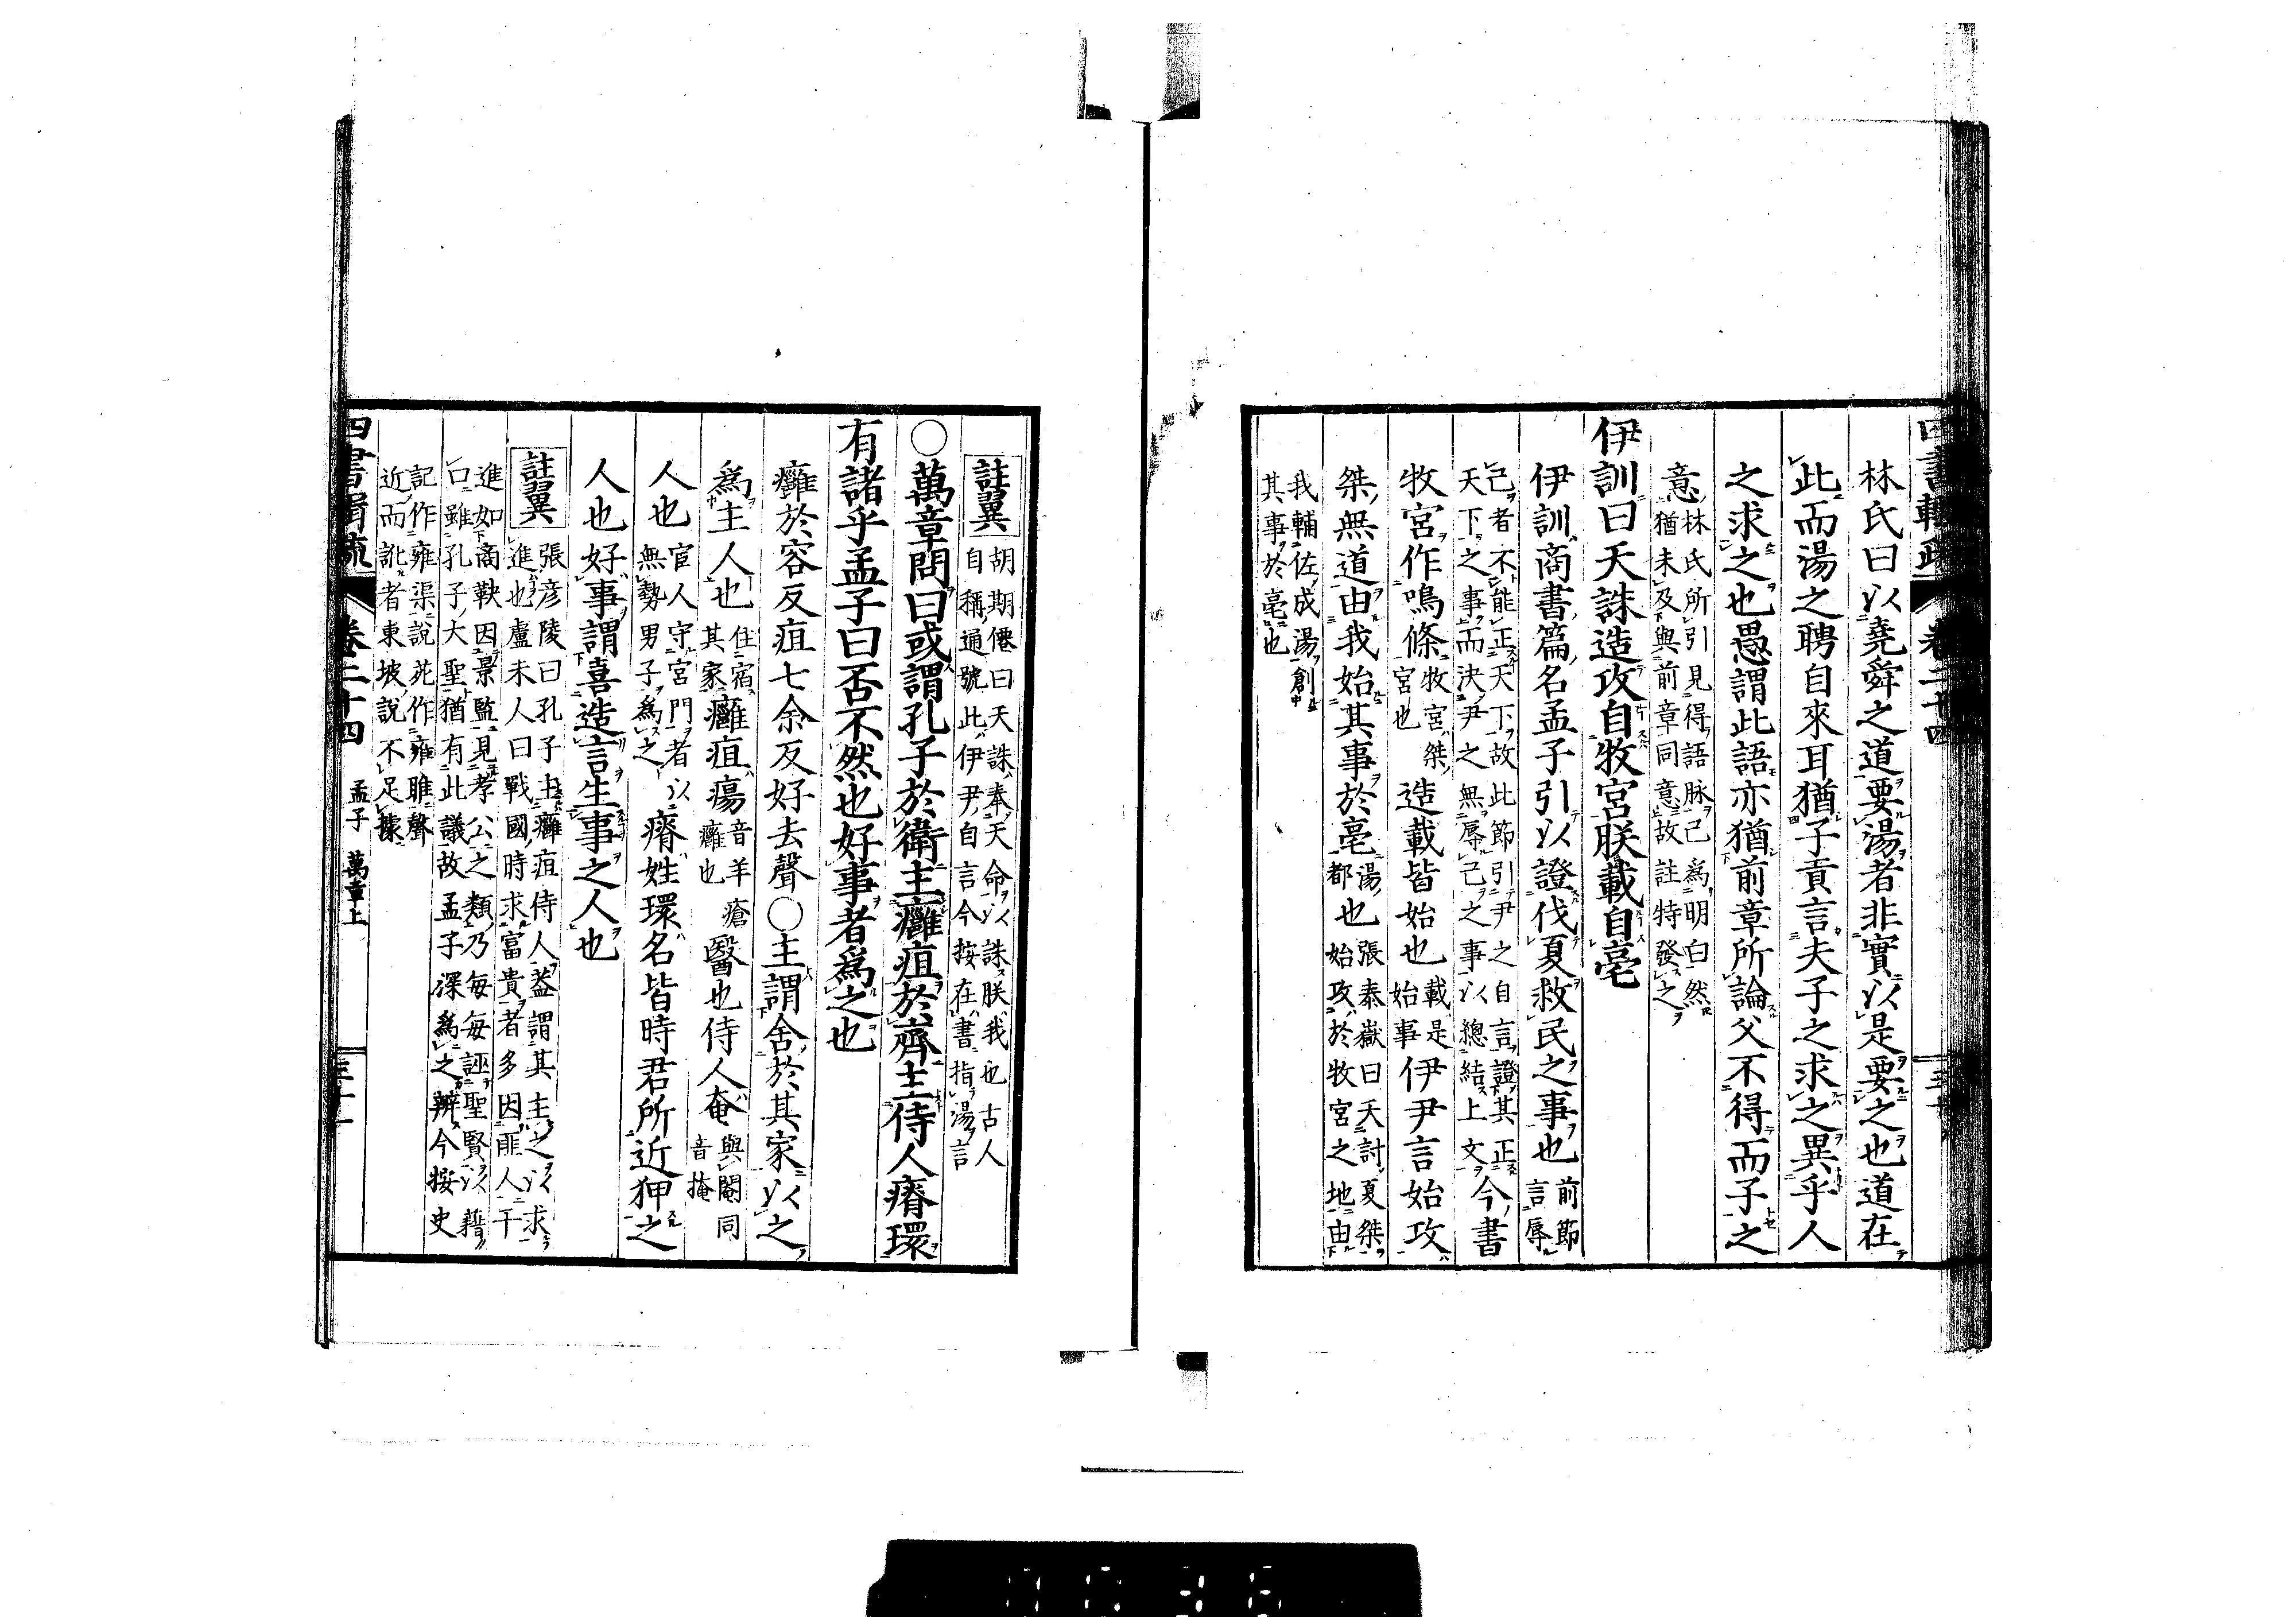 四書輯疏 卷二十四
林氏曰以堯舜之道要湯者非實以是要之也道在
此而湯之聘自來耳猶子貢言夫子之求之異乎人
之求之也愚謂此語亦猶前章所論父不得而子之
意林氏所引見得語脉已為明白然
猶未及與前章同意故註特發之
伊訓曰天誅造攻自牧宮朕載自亳
伊訓商書篇名孟子引以證伐夏救民之事也前節
言辱
己者不能正天下故此節引尹之自言證其正
天下之事而決尹之無辱己之事以總結上文今書
牧宮作鳴條牧宮桀
宮也造載皆始也載是
始事伊尹言始攻
桀無道由我始其事於亳湯
都也張泰嶽曰天討夏桀
始攻於牧宮之地由
我輔佐成湯創
其事於亳也
註翼 胡期僊曰天誅奉天命以誅朕我也古人
自稱通號此伊尹自言今按在書指湯言
○萬章問曰或謂孔子於衛主癰疽於齊主侍人瘠環
有諸乎孟子曰否不然也好事者爲之也
癰於容反疽七余反好去聲○主謂舍於其家以之
爲主人也住宿
其家癰疽瘍音羊瘡
癰也醫也侍人奄與閹同
音掩
人也官人守宮門者以
無勢男子爲之瘠姓環名皆時君所近狎之
人也好事謂喜造言生事之人也
註翼 張彥陵曰孔子主癰疽侍人蓋謂其主之以求
進也盧未人曰戰國時求富貴者多因匪人干
進如商鞅因景監見孝公之類乃每每誣聖賢以藉
口雖孔子大聖猶有此議故孟子深爲之辨今按史
記作雍渠說苑作雍雎聲
近而訛者東坡說不足據
四書輯疏 卷二十四 孟子 萬章上